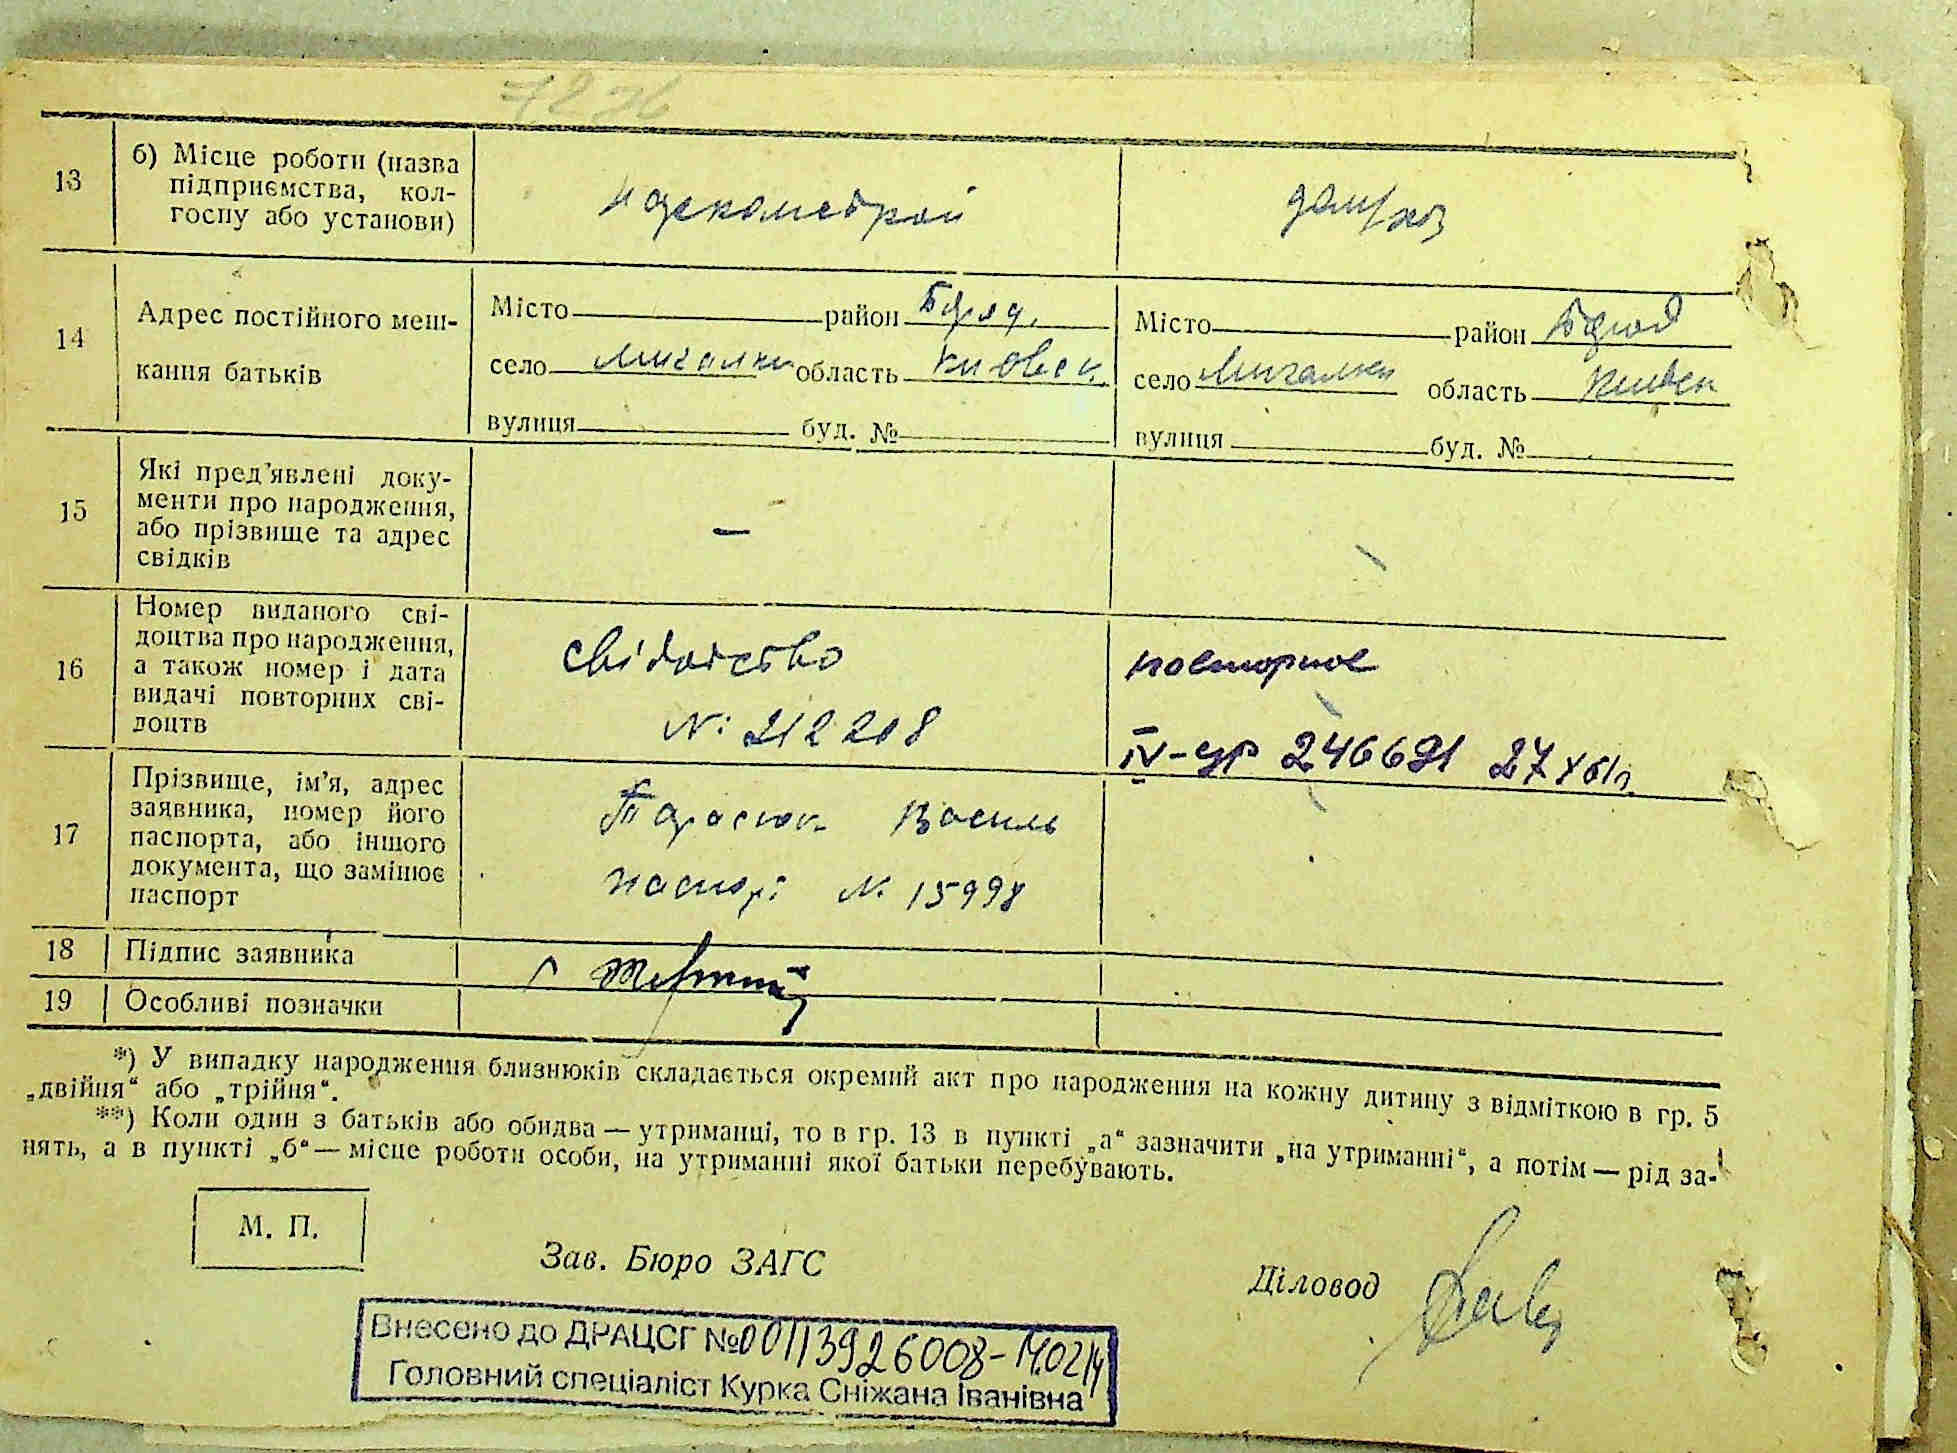 7276
13 б) Місце роботи (назва підприємства, колгоспу або установи)
14 Адрес постійного мешкання батьків
Місто район Бород.
село Мигалки область Киовск.
вулиця буд. №
Місто район Бород
село Мигалки область Киевск
вулиця буд. №
15 Які пред’явлені документи про народження, або прізвище та адрес свідків
—
16 Номер виданого свідоцтва про народження, а також номер і дата видачі повторних свідоцтв
свідоцтво
№ 212208
повторное
IV-УР 246691 27 X 61г.
17 Прізвище, ім’я, адрес заявника, номер його паспорта, або іншого документа, що замінює паспорт
Тарасюк Василь
паспорт № 15998
18 Підпис заявника
19 Особливі позначки
*) У випадку народження близнюків складається окремий акт про народження на кожну дитину з відміткою в гр. 5
„двійня“ або „трійня“.
**) Коли один з батьків або обидва — утриманці, то в гр. 13 в пункті „а“ зазначити „на утриманні“, а потім — рід за-
нять, а в пункті „б“ — місце роботи особи, на утриманні якої батьки перебувають.
М. П.
Зав. Бюро ЗАГС
Діловод
Внесено до ДРАЦСГ №00113926008-14.02.14
Головний спеціаліст Курка Сніжана Іванівна